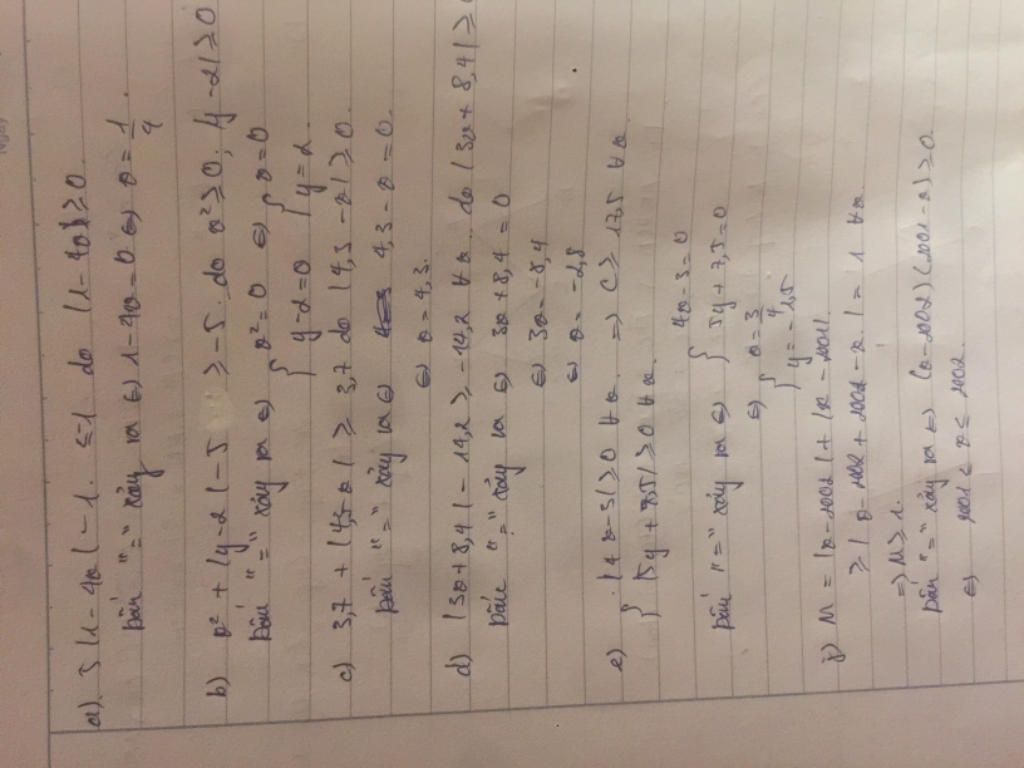 a) 3|1-4x|-1 ≤ -1 do |1-4x| ≥ 0.
Dấu "=" xảy ra ⇔ 1-4x=0 ⇔ x = 1/4.
b) x² + |y-2| - 5 ≥ -5 do x² ≥ 0, |y-2| ≥ 0
Dấu "=" xảy ra ⇔ { x² = 0 ⇔ { x = 0
y-2 = 0 y = 2.
c) 3,7 + |4,3-x| ≥ 3,7 do |4,3-x| ≥ 0.
Dấu "=" xảy ra ⇔ 4,3-x = 0.
⇔ x = 4,3.
d) |3x+8,4| - 14,2 ≥ -14,2 ∀x do |3x+8,4| ≥
Dấu "=" xảy ra ⇔ 3x+8,4 = 0
⇔ 3x = -8,4
⇔ x = -2,8
e) { |4x-3| ≥ 0 ∀x. ⇒ C ≥ 17,5 ∀x
|5y+7,5| ≥ 0 ∀x.
Dấu "=" xảy ra ⇔ { 4x-3 = 0
5y+7,5 = 0
⇔ { x = 3/4
y = -1,5
j) M = |x-2002| + |x-2001|
≥ |x-2002+2001-x| = 1 ∀x
⇒ M ≥ 1.
Dấu "=" xảy ra ⇔ (x-2002)(2001-x) ≥ 0
⇔ 2001 ≤ x ≤ 2002.